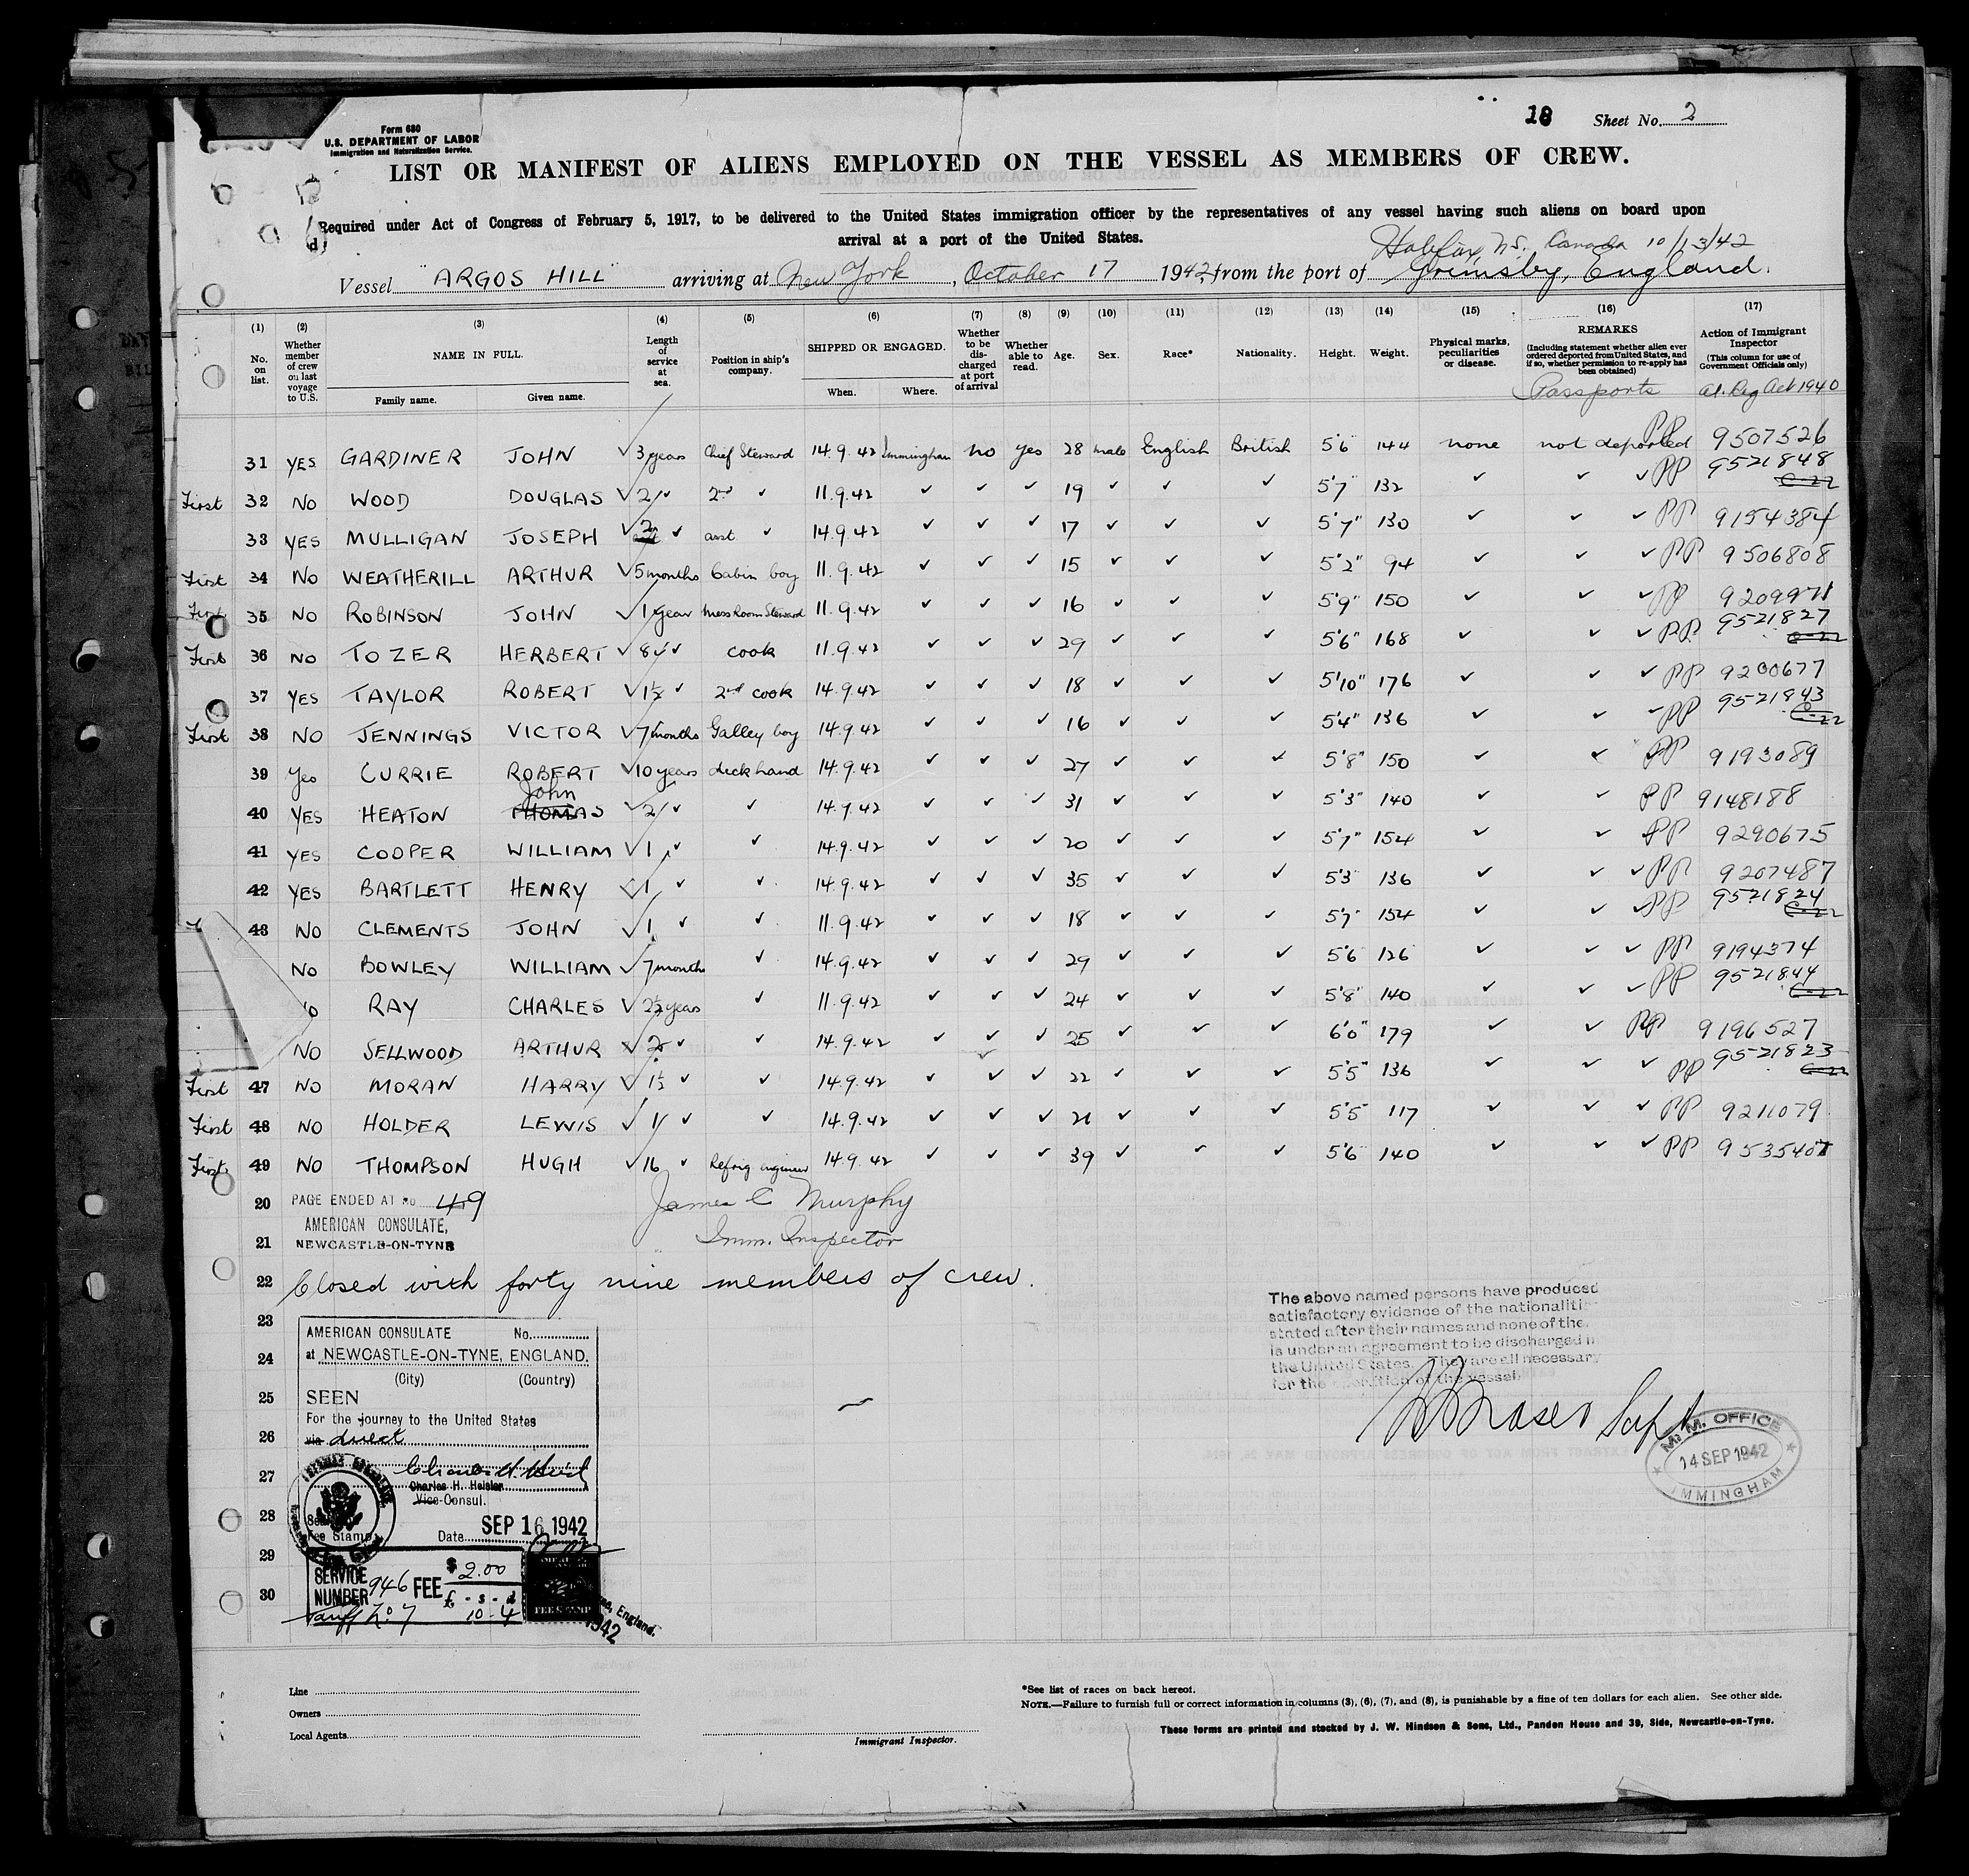 18 Sheet No. 2
Form 680
U.S. DEPARTMENT OF LABOR
Immigration and Naturalization Service.
LIST OR MANIFEST OF ALIENS EMPLOYED ON THE VESSEL AS MEMBERS OF CREW.
Required under Act of Congress of February 5, 1917, to be delivered to the United States immigration officer by the representatives of any vessel having such aliens on board upon
arrival at a port of the United States.
Halifax, N.S. Canada 10/13/42
Vessel "ARGOS HILL" arriving at New York, October 17 1942, from the port of Grimsby, England.
(1) No. on list.
(2) Whether member of crew on last voyage to U.S.
(3) NAME IN FULL. Family name. Given name.
(4) Length of service at sea.
(5) Position in ship's company.
(6) SHIPPED OR ENGAGED. When. Where.
(7) Whether to be discharged at port of arrival
(8) Whether able to read.
(9) Age.
(10) Sex.
(11) Race*
(12) Nationality.
(13) Height.
(14) Weight.
(15) Physical marks, peculiarities or disease.
(16) REMARKS (Including statement whether alien ever ordered deported from United States, and if so, whether permission to re-apply has been obtained) Passports
(17) Action of Immigrant Inspector (This column for use of Government Officials only) Al. Reg Act 1940
31 YES GARDINER JOHN ✓ 3 years Chief Steward 14.9.42 Immingham no yes 28 male English British 5'6 144 none not deported PP 9507526
First 32 NO WOOD DOUGLAS ✓ 2 ✓ 2nd ✓ 11.9.42 ✓ ✓ ✓ 19 ✓ ✓ ✓ 5'7" 132 ✓ ✓ ✓ PP 9521848 C-22
33 YES MULLIGAN JOSEPH ✓ 2 ✓ asst ✓ 14.9.42 ✓ ✓ ✓ 17 ✓ ✓ ✓ 5'7" 130 ✓ ✓ ✓ PP 9154384
First 34 NO WEATHERILL ARTHUR ✓ 5 months Cabin boy 11.9.42 ✓ ✓ ✓ 15 ✓ ✓ ✓ 5'2" 94 ✓ ✓ ✓ PP 9506808
First 35 NO ROBINSON JOHN ✓ 1 year Mess Room Steward 11.9.42 ✓ ✓ ✓ 16 ✓ ✓ ✓ 5'9" 150 ✓ ✓ ✓ PP 9209971
First 36 NO TOZER HERBERT ✓ 8 ✓ cook 11.9.42 ✓ ✓ ✓ 29 ✓ ✓ ✓ 5'6" 168 ✓ ✓ ✓ PP 9521827 C-22
37 YES TAYLOR ROBERT ✓ 1½ ✓ 2nd cook 14.9.42 ✓ ✓ ✓ 18 ✓ ✓ ✓ 5'10" 176 ✓ ✓ ✓ PP 9200677
First 38 NO JENNINGS VICTOR ✓ 7 months Galley boy 14.9.42 ✓ ✓ ✓ 16 ✓ ✓ ✓ 5'4" 136 ✓ ✓ ✓ PP 9521843 C-22
39 Yes CURRIE ROBERT ✓ 10 years deck hand 14.9.42 ✓ ✓ ✓ 27 ✓ ✓ ✓ 5'8" 150 ✓ ✓ PP 9193089
40 YES HEATON THOMAS John ✓ 2 ✓ ✓ 14.9.42 ✓ ✓ ✓ 31 ✓ ✓ ✓ 5'3" 140 ✓ ✓ PP 9148188
41 YES COOPER WILLIAM ✓ 1 ✓ ✓ 14.9.42 ✓ ✓ ✓ 20 ✓ ✓ ✓ 5'7" 154 ✓ ✓ PP 9290675
42 YES BARTLETT HENRY ✓ 1 ✓ ✓ 14.9.42 ✓ ✓ ✓ 35 ✓ ✓ ✓ 5'3" 136 ✓ ✓ ✓ PP 9207487
43 NO CLEMENTS JOHN ✓ 1 ✓ ✓ 11.9.42 ✓ ✓ ✓ 18 ✓ ✓ ✓ 5'7" 154 ✓ ✓ ✓ PP 9521824 C-22
NO BOWLEY WILLIAM ✓ 7 months ✓ 14.9.42 ✓ ✓ ✓ 29 ✓ ✓ ✓ 5'6 126 ✓ ✓ ✓ PP 9194374
RAY CHARLES ✓ 2½ years ✓ 11.9.42 ✓ ✓ ✓ 24 ✓ ✓ ✓ 5'8" 140 ✓ ✓ ✓ PP 9521844 C-22
NO SELLWOOD ARTHUR 2 ✓ ✓ 14.9.42 ✓ ✓ ✓ 25 ✓ ✓ ✓ 6'0" 179 ✓ ✓ PP 9196527
First 47 NO MORAN HARRY ✓ 1½ ✓ ✓ 14.9.42 ✓ ✓ ✓ 22 ✓ ✓ ✓ 5'5" 136 ✓ ✓ ✓ PP 9521823 C-22
First 48 NO HOLDER LEWIS ✓ 1 ✓ ✓ 14.9.42 ✓ ✓ ✓ 21 ✓ ✓ ✓ 5'5" 117 ✓ ✓ ✓ PP 9211079
First 49 NO THOMPSON HUGH ✓ 16 ✓ Refrig engineer 14.9.42 ✓ ✓ ✓ 39 ✓ ✓ ✓ 5'6 140 ✓ ✓ ✓ PP 9535407
20 PAGE ENDED AT No 49 James C Murphy
AMERICAN CONSULATE,
21 NEWCASTLE-ON-TYNE Imm. Inspector
22 Closed with forty nine members of crew.
The above named persons have produced
satisfactory evidence of the nationalities
stated after their names and none of the
is under an agreement to be discharged in
the United States. They are all necessary
for the operation of the vessel.
Supt
M. M. OFFICE
14 SEP 1942
IMMINGHAM
23
AMERICAN CONSULATE No.
24 at NEWCASTLE-ON-TYNE, ENGLAND.
(City) (Country)
25 SEEN
For the journey to the United States
26 via direct
27
Charles H. Heisler
Vice-Consul.
28
Fee Stamp Date SEP 16 1942
29
30
SERVICE NUMBER 946 FEE $2.00
£ - s - d
Tariff No 7 10 - 4
FEE STAMP
England.
1942
Line
Owners
Local Agents
Immigrant Inspector.
*See list of races on back hereof.
NOTE.—Failure to furnish full or correct information in columns (3), (6), (7), and (8), is punishable by a fine of ten dollars for each alien. See other side.
These forms are printed and stocked by J. W. Hindson & Sons, Ltd., Pandon House and 39, Side, Newcastle-on-Tyne.